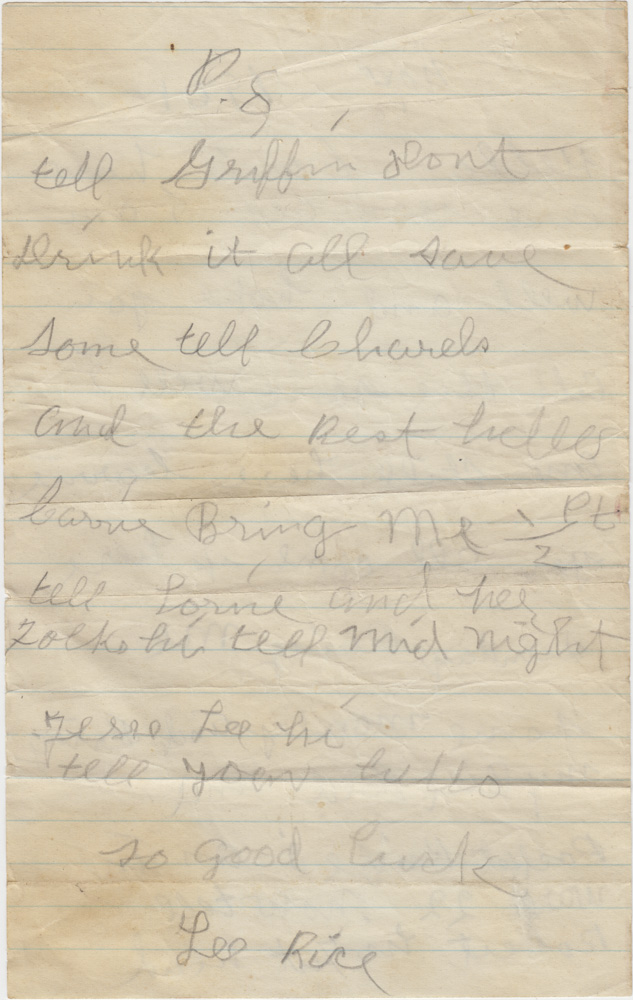 P.S
tell Griffin dont
drink it all save
some tell Charels
and the Rest hello
Carrie Bring Me 1/2 Pt
tell Lorine and her
folks hi tell Mid night
Jesse Lee hi
tell hello
so Good luck
Lee Rice